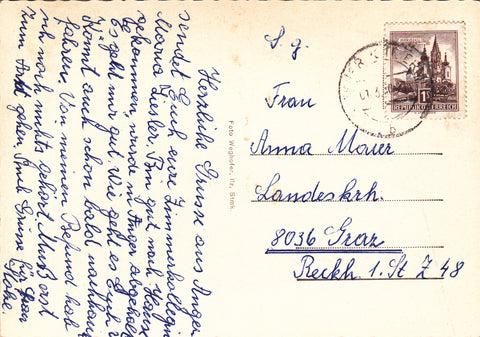 Herzliche Grüsse aus Anger
sendet Euch eure Zimmerkollegin
Maria Ziesler. Bin gut nach Hause
gekommen, wurde v. Anger abgeholt
Es geht mir gut. Wie geht es Euch?
Könnt auch schon bald nachhause
fahren. Von meinem Befund hab
ich noch nichts gehört. Muß erst
zum Arzt gehen. Viele Grüsse
Foto Weghofer, Ilz, Stmk.
S. g.
Frau
Anna Maurer
Landeskrh.
8036 Graz
Rechh 1. St Z 48
1
REPUBLIK ÖSTERREICH